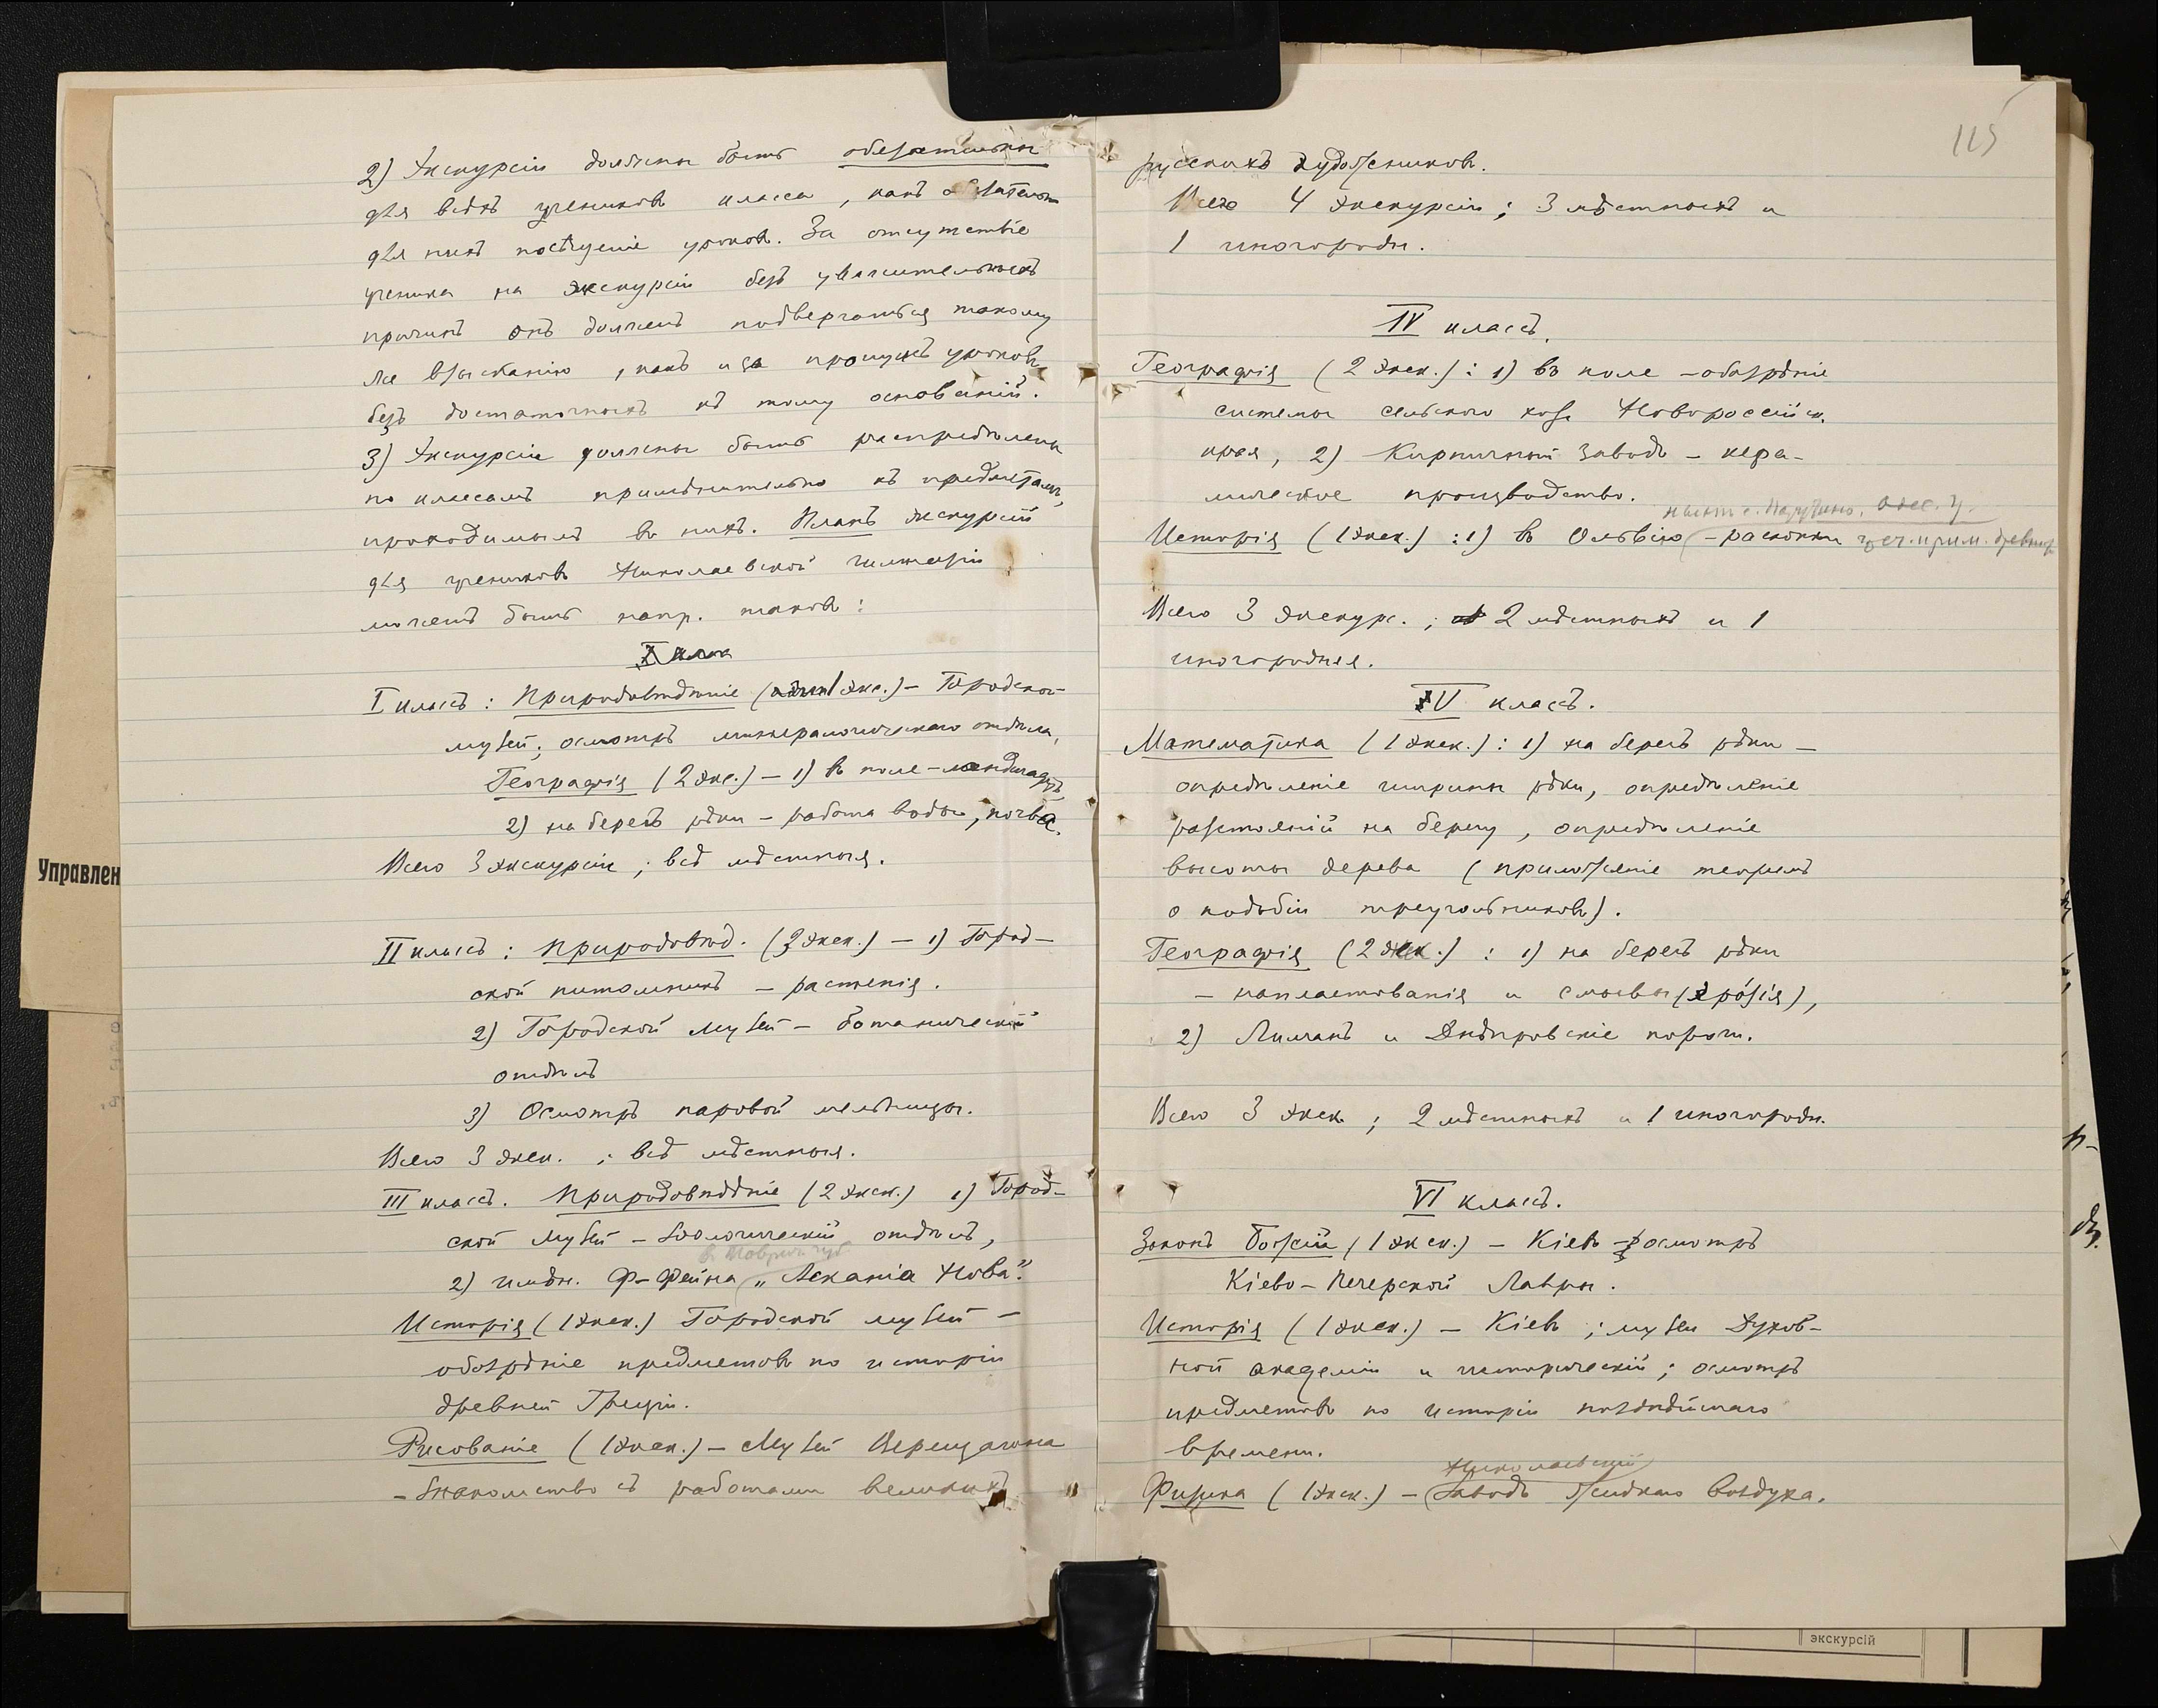 2) Экскурсіи должны быть обязательны
для всѣхъ учениковъ класса, какъ обязательно
для нихъ посѣщеніе уроковъ. За отсутствіе
ученика на экскурсіи безъ уважительныхъ
причинъ онъ долженъ подвергаться такому
же взысканію, какъ и за пропускъ уроковъ
безъ достаточныхъ къ тому основаній.
3) Экскурсіи должны быть распредѣлены
по классамъ примѣнительно къ предметамъ,
проходимымъ въ нихъ. Планъ экскурсій
для учениковъ Николаевской гимназіи
можетъ быть напр. таковъ:
I классъ: Природовѣдѣніе (1 экс.) – Городской
музей; осмотръ минералогическаго отдѣла,
Географія (2 экс.) – 1) въ поле – ландшафтъ,
2) на берегъ рѣки – работа воды, почва.
Всего 3 экскурсіи; всѣ мѣстныя.
II классъ: Природовѣд. (3 экск.) – 1) Город-
ской питомникъ – растенія.
2) Городской музей – ботаническій
отдѣлъ
3) Осмотръ паровой мельницы.
Всего 3 экск.; всѣ мѣстныя.
III классъ. Природовѣдѣніе (2 экск.) 1) Город-
ской музей – зоологическій отдѣлъ,
въ Таврич. губ.
2) имѣн. Ф-Фейна „Асканіа Нова".
Исторія (1 экск.) Городской музей –
обозрѣніе предметовъ по исторіи
древней Греціи.
Рисованіе (1 экск.) – Музей Верещагина
– знакомство съ работами великихъ
115
русскихъ художниковъ.
Всего 4 экскурсіи; 3 мѣстныхъ и
1 иногородн.
IV классъ.
Географія (2 экск.): 1) въ поле – обозрѣніе
системы сельскаго хоз. Новороссійск.
края, 2) Кирпичный заводъ – кера-
мическое производство.
с. Парутино, Одес. у.
Исторія (1 экск.): 1) въ Ольвію – раскопки греч. рим. древнос.
Всего 3 экскурс.; 2 мѣстныхъ и 1
иногородняя.
V классъ.
Математика (1 экск.): 1) на берегъ рѣки –
опредѣленіе ширины рѣки, опредѣленіе
разстояній на берегу, опредѣленіе
высоты дерева (приложеніе теоремъ
о подобіи треугольниковъ).
Географія (2 экск.): 1) на берегъ рѣки
– напластованія и смывы (эрозія),
2) Лиманъ и Днѣпровскіе пороги.
Всего 3 экск; 2 мѣстныхъ и 1 иногородн.
VI классъ.
Законъ Божій (1 экск.) – Кіевъ – осмотръ
Кіево-Печерской Лавры.
Исторія (1 экск.) – Кіевъ; музеи Духов-
ной академіи и историческій; осмотръ
предметовъ по исторіи позднѣйшаго
времени.
Николаевскій
Физика (1 экск.) – Заводъ жидкаго воздуха.
Управлен
экскурсій